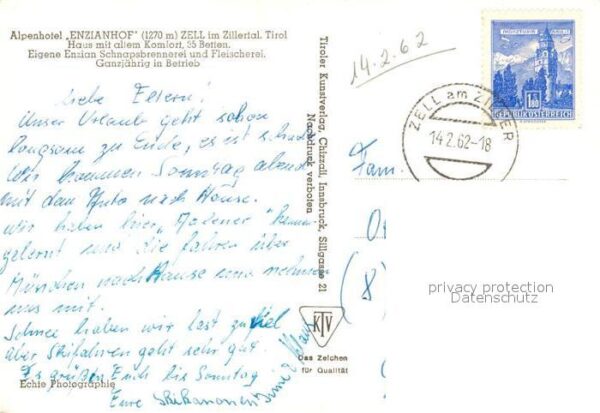 Alpenhotel „ENZIANHOF" (1270 m) ZELL im Zillertal. Tirol
Haus mit allem Komfort, 35 Betten.
Eigene Enzian Schnapsbrennerei und Fleischerei.
Ganzjährig in Betrieb
Liebe Eltern!
Unser Urlaub geht schon
langsam zu Ende, es ist schade
Wir kommen Sonntag abend
mit dem Auto nach Hause.
Wir haben hier
gelernt und die fahren über
München nach Hause und nehmen
uns mit.
Schnee haben wir fast zu viel
aber Skifahren geht sehr gut.
Es grüßen Euch bis Sonntag
Eure Skikanonen
Echte Photographie
Tiroler Kunstverlag, Chizzali, Innsbruck, Sillgasse 21
Nachdruck verboten
KTV
Das Zeichen
für Qualität
14.2.62
ZELL am ZILLER
14.2.62-18
1.80
REPUBLIK ÖSTERREICH
Fam.
(8
privacy protection
Datenschutz